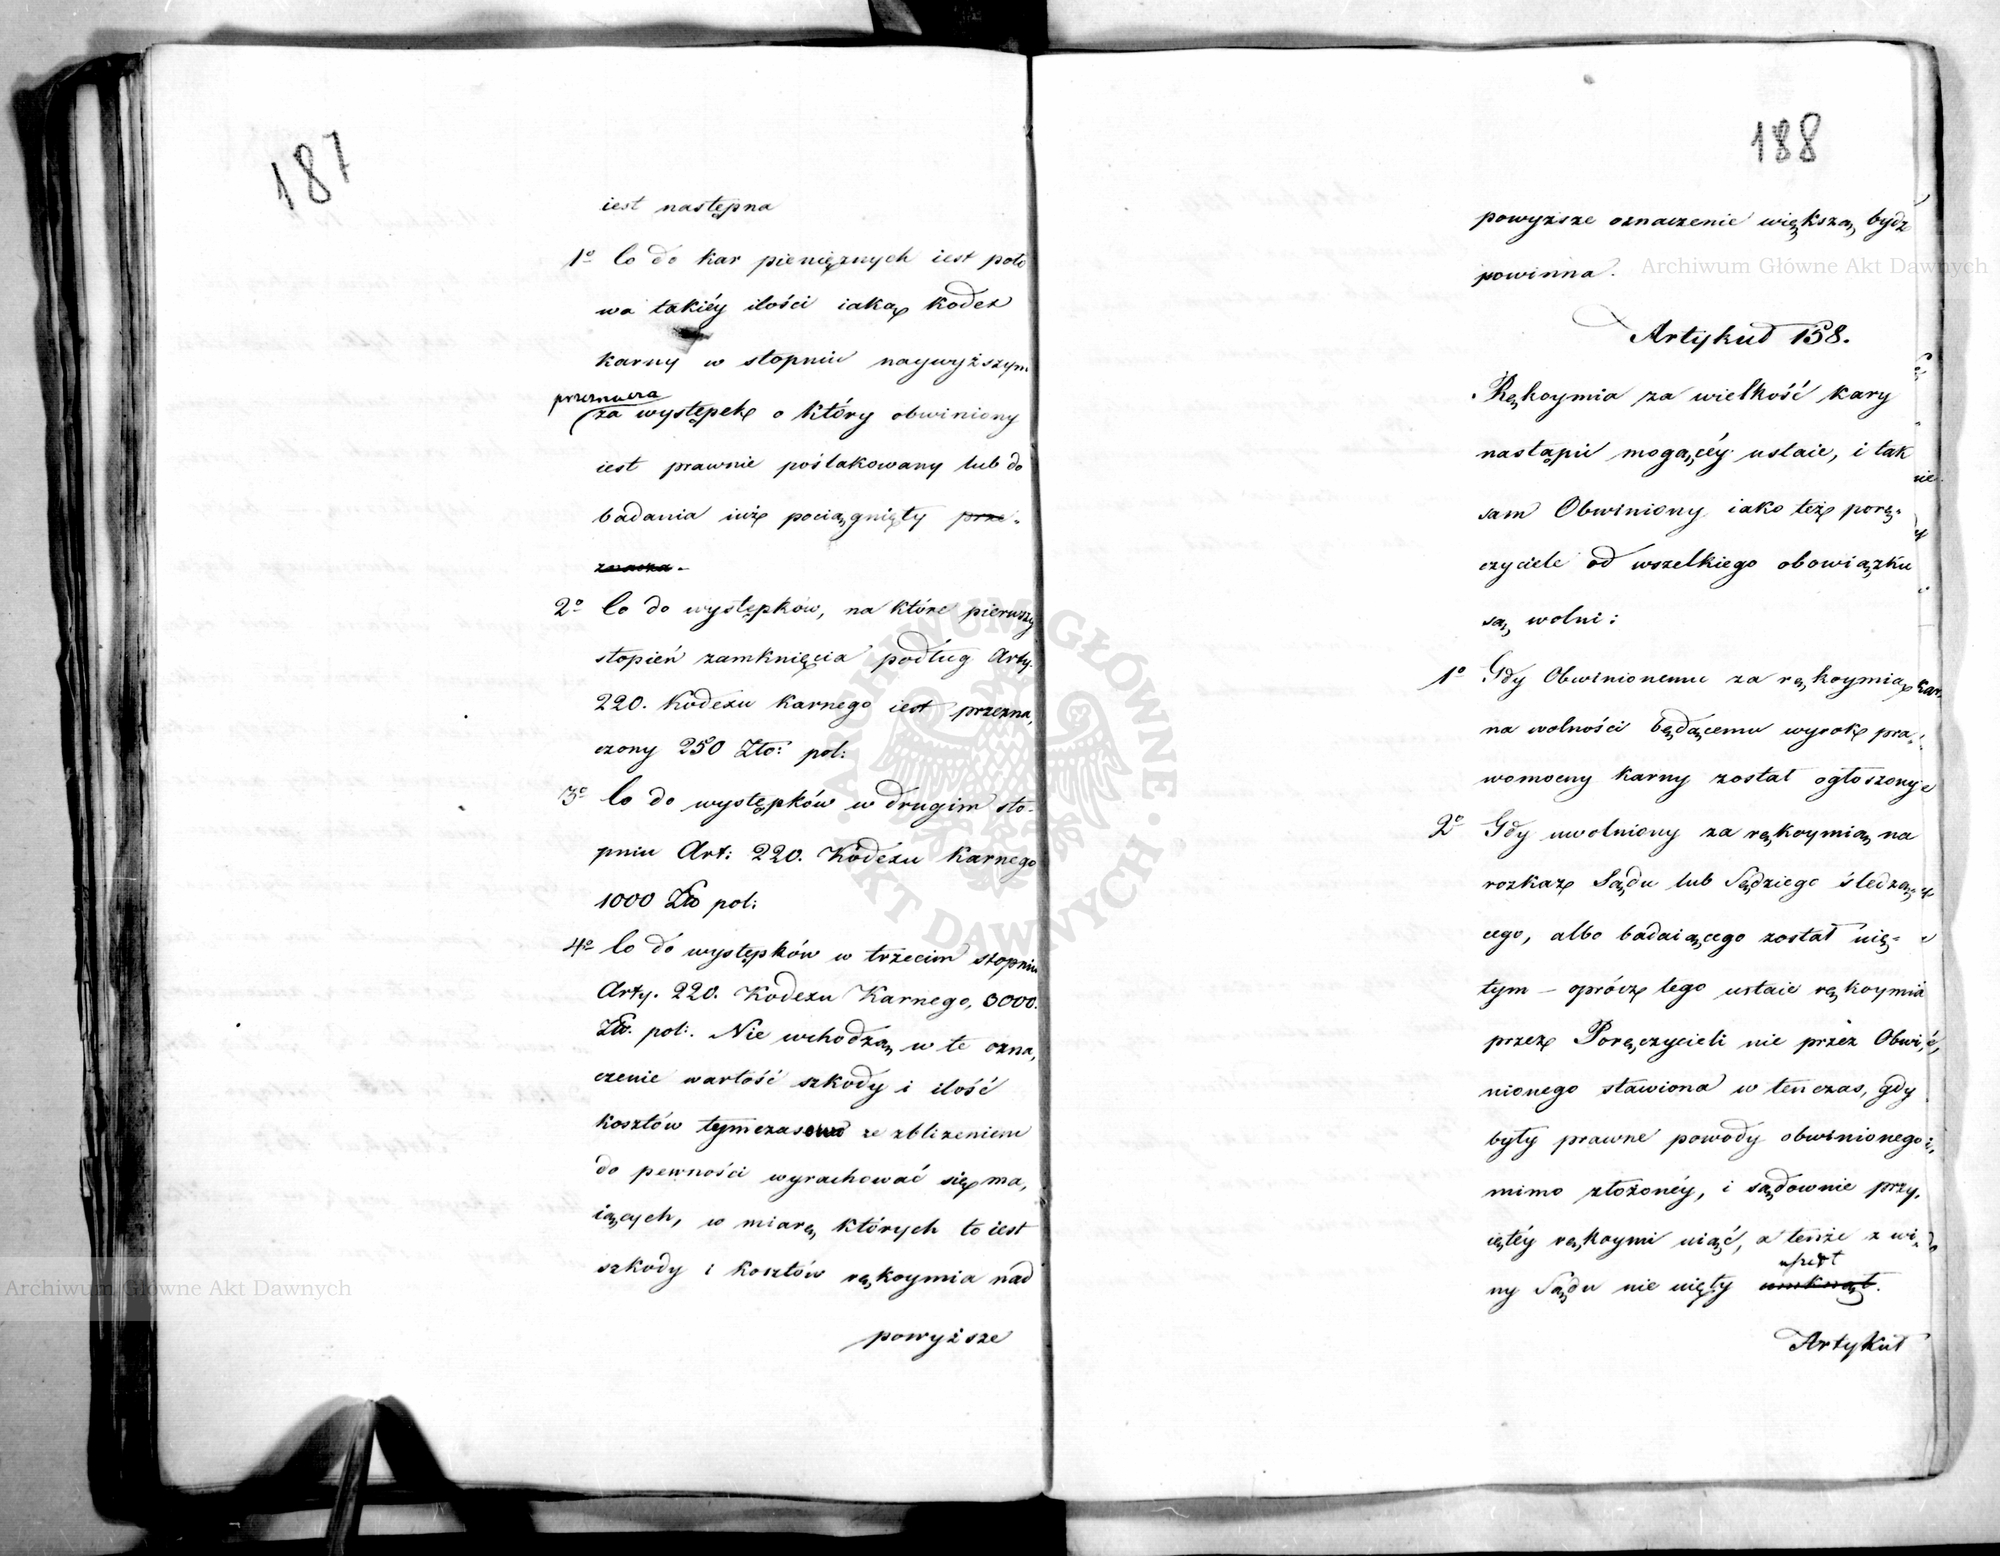 187
iest następna
1o Co do kar pieniężnych iest poło
wa takiéy ilości iaką kodex
karny w stopniu naywyższym
przeznacza
za występek o który obwiniony
iest prawnie poślakowany lub do
badania iuż pociągnięty prze-
znacza.
2o Co do występków, na które pierwszy
stopień zamknięcia podług Arty.
220. Kodexu Karnego iest przezna,
czony 250 Zło: pol:
3o Co do występków w drugim sto-
pniu Art: 220. Kodexu Karnego
1000 Zło pol:
4o Co do występków w trzecim stopniu
Arty. 220. Kodexu Karnego, 3000.
Zło. pol:. Nie wchodzą w te ozna,
czenie wartość szkody i ilość
kosztów tymczasowo ze zbliżeniem
do pewności wyrachować się ma,
iących, w miarę których to iest
szkody i kosztów rękoymia nad
powyższe
188
powyższe oznaczenie większą bydź
powinna.
Artykuł 158.
Rękoymia za wielkość kary
nastąpić mogącéy ustaie, i tak
sam Obwiniony iako też porę-
czyciele od wszelkiego obowiązku
są wolni:
1o Gdy Obwinionemu za rękoymią
na wolności będącemu wyrok pra-
womocny karny został ogłoszony
2o Gdy uwolniony za rękoymią na
rozkaz Sądu lub Sędziego śledzą-
cego, albo badaiącego został uię-
tym – oprócz tego ustaie rękoymia
przez Poręczycieli nie przez Obwi-
nionego stawiona w tenczas, gdy
były prawne powody obwinionego
mimo złożonéy, i sądownie przy-
iętéy rękoymi uiąć, a tenże z wi-
ny Sądu nie uięty umknął.
Artykuł
Archiwum Główne Akt Dawnych
Archiwum Główne Akt Dawnych
ARCHIWUM GŁÓWNE · AKT DAWNYCH ·